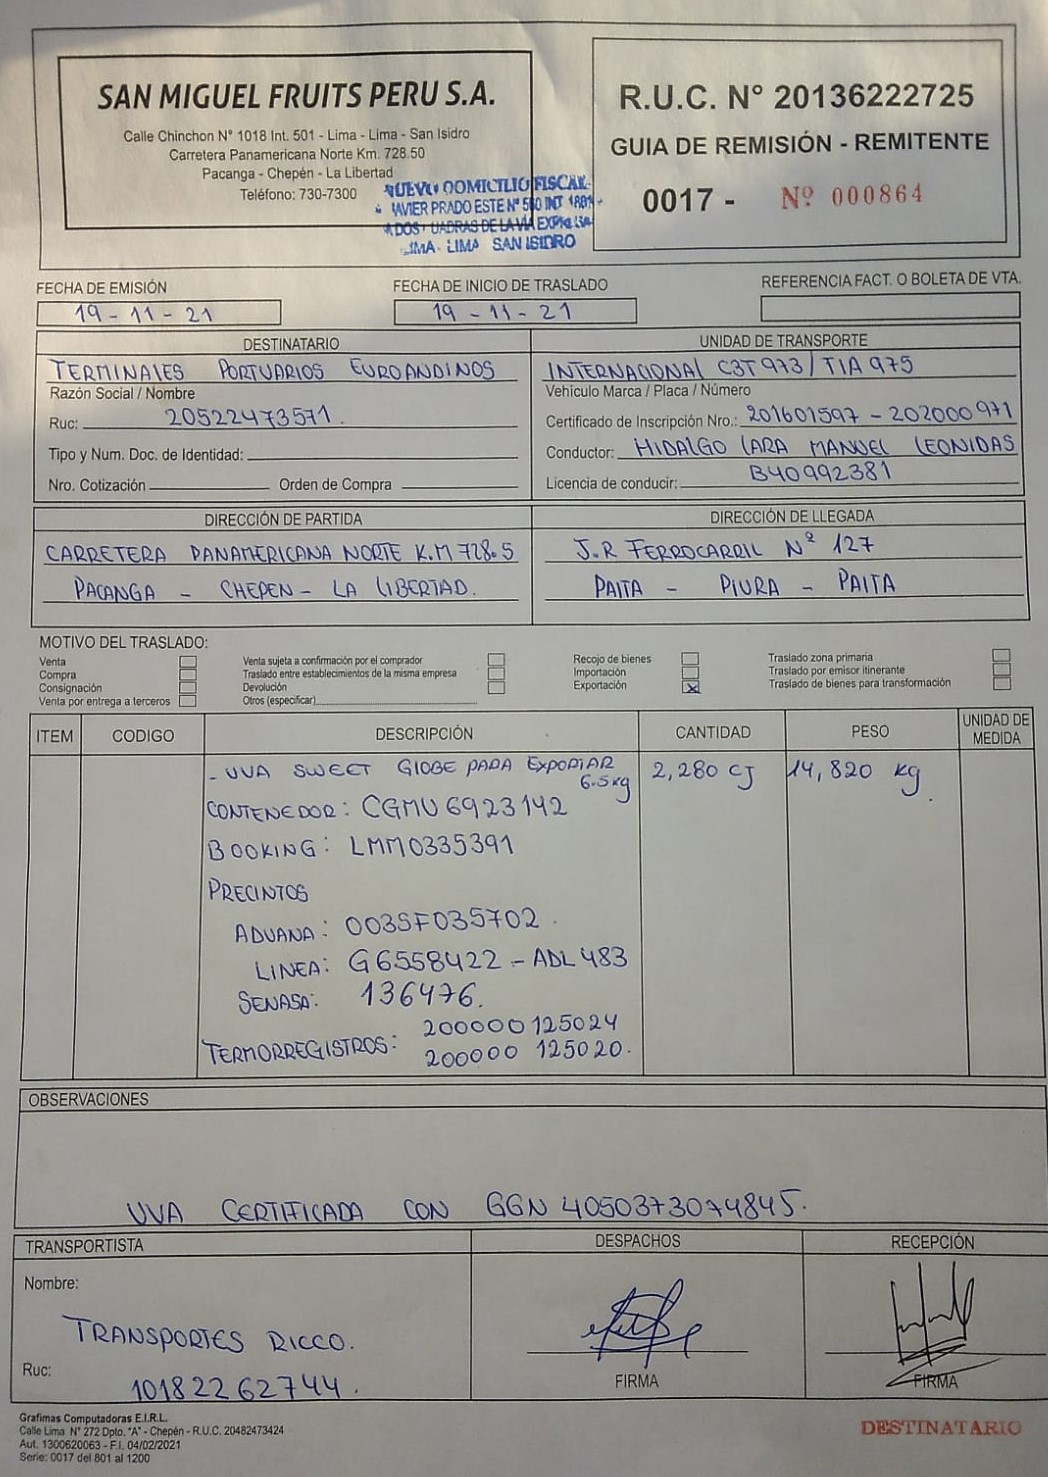 SAN MIGUEL FRUITS PERU S.A.
Calle Chinchon N° 1018 Int. 501 - Lima - Lima - San Isidro
Carretera Panamericana Norte Km. 728.50
Pacanga - Chepén - La Libertad
Teléfono: 730-7300
NUEVO DOMICILIO FISCAL
JAVIER PRADO ESTE N° 560 INT 1801
UADRAS DE LA VIA EXPRESA
LIMA - LIMA SAN ISIDRO
R.U.C. N° 20136222725
GUIA DE REMISIÓN - REMITENTE
0017 - Nº 000864
FECHA DE EMISIÓN
19 - 11 - 21
FECHA DE INICIO DE TRASLADO
19 - 11 - 21
REFERENCIA FACT. O BOLETA DE VTA.
DESTINATARIO
TERMINALES PORTUARIOS EUROANDINOS
Razón Social / Nombre
Ruc: 20522473571.
Tipo y Num. Doc. de Identidad:
Nro. Cotización Orden de Compra
UNIDAD DE TRANSPORTE
INTERNACIONAL C3T973 / TIA 975
Vehículo Marca / Placa / Número
Certificado de Inscripción Nro.: 201601597 - 202000971
Conductor: HIDALGO LARA MANUEL LEONIDAS
Licencia de conducir: B40992381
DIRECCIÓN DE PARTIDA
CARRETERA PANAMERICANA NORTE K.M 728.5
PACANGA - CHEPEN - LA LIBERTAD.
DIRECCIÓN DE LLEGADA
J.R FERROCARRIL Nº 127
PAITA - PIURA - PAITA
MOTIVO DEL TRASLADO:
Venta
Compra
Consignación
Venta por entrega a terceros
Venta sujeta a confirmación por el comprador
Traslado entre establecimientos de la misma empresa
Devolución
Otros (especificar)
Recojo de bienes
Importación
Exportación X
Traslado zona primaria
Traslado por emisor itinerante
Traslado de bienes para transformación
ITEM CODIGO DESCRIPCIÓN CANTIDAD PESO UNIDAD DE MEDIDA
- UVA SWEET GLOBE PARA EXPORTAR 6.5kg 2,280 CJ 14,820 kg.
CONTENEDOR: CGMU 6923142
BOOKING: LMM0335391
PRECINTOS
ADUANA: 003SF035702.
LINEA: G6558422 - ADL 483
SENASA: 136476.
TERMORREGISTROS: 200000125024
200000 125020.
OBSERVACIONES
UVA CERTIFICADA CON GGN 4050373074845.
TRANSPORTISTA
Nombre:
TRANSPORTES RICCO.
Ruc:
10182262744.
DESPACHOS
FIRMA
RECEPCIÓN
FIRMA
Grafimas Computadoras E.I.R.L.
Calle Lima N° 272 Dpto. "A" - Chepén - R.U.C. 20482473424
Aut. 1300620063 - F.I. 04/02/2021
Serie: 0017 del 801 al 1200
DESTINATARIO